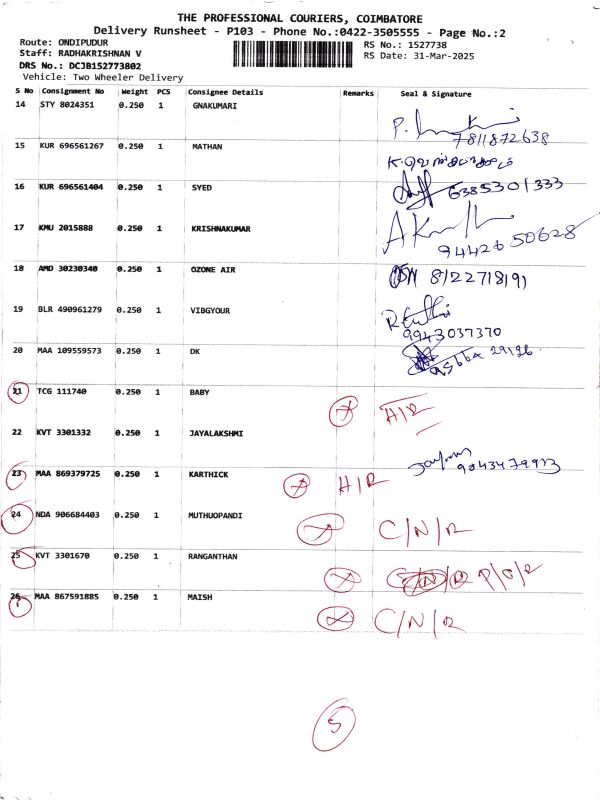 THE PROFESSIONAL COURIERS, COIMBATORE
Delivery Runsheet - P103 - Phone No.:0422-3505555 - Page No.:2
Route: ONDIPUDUR
RS No.: 1527738
Staff: RADHAKRISHNAN V
RS Date: 31-Mar-2025
DRS No.: DCJB152773802
Vehicle: Two Wheeler Delivery
S No Consignment No Weight PCS Consignee Details Remarks Seal & Signature
14 STY 8024351 0.250 1 GNAKUMARI
7811872638
15 KUR 696561267 0.250 1 MATHAN
16 KUR 696561404 0.250 1 SYED
6385301333
17 KMU 2015888 0.250 1 KRISHNAKUMAR
9442650628
18 AMD 30230340 0.250 1 OZONE AIR
8122718191
19 BLR 490961279 0.250 1 VIBGYOUR
9943037370
20 MAA 109559573 0.250 1 DK
21 TCG 111740 0.250 1 BABY
H/R
22 KVT 3301332 0.250 1 JAYALAKSHMI
23 MAA 869379725 0.250 1 KARTHICK
H/R
24 NDA 906684403 0.250 1 MUTHUOPANDI
C/N/R
25 KVT 3301670 0.250 1 RANGANTHAN
P/O/R
26 MAA 867591885 0.250 1 MAISH
C/N/R
5